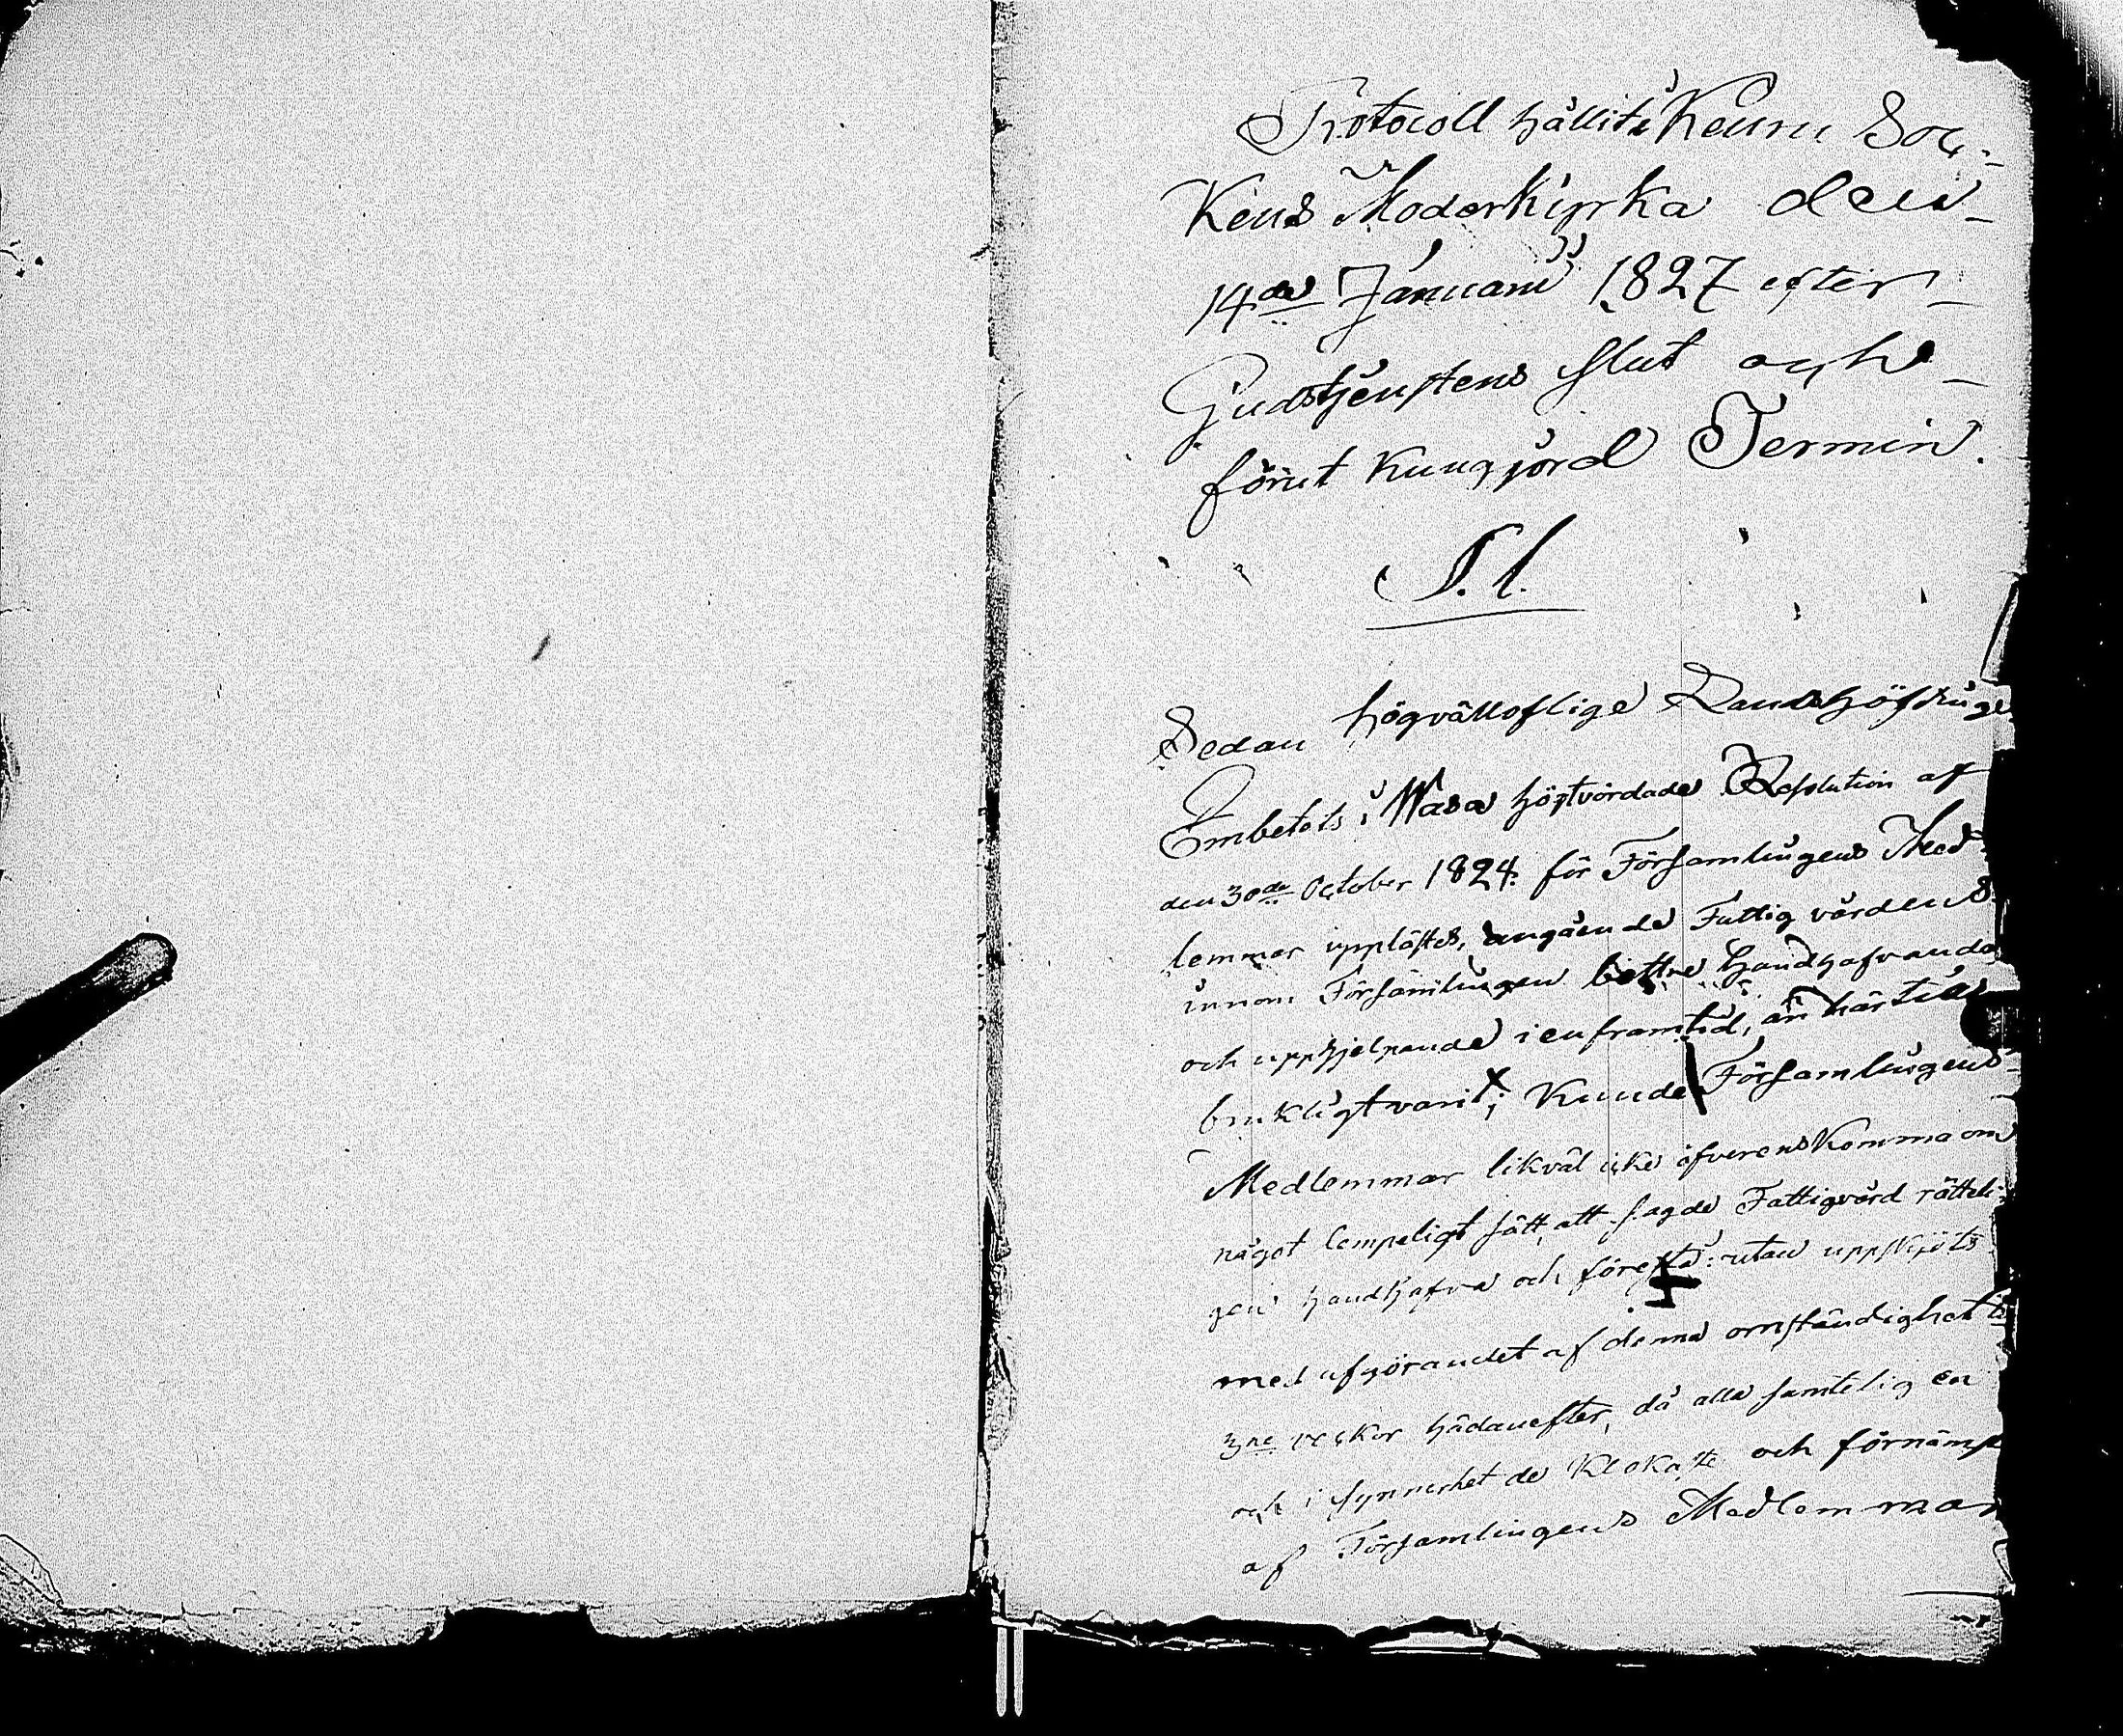 Protocoll hållit i Keuru Soc-
kens Moderkyrka den
14de Januarii 1827 efter
Gudstjenstens slut och
förut kungjord Termin.
§. 1.
Sedan högvälloflige Landshöfdinge
Embetets i Wasa högtvördade Resolution af
den 30de October 1824 för Församlingens Med-
lemmar upplästes, angående Fattigvårdens
innom Församlingen bättre handhafvande
och upphjelpande i en framtid, än härtills
brukligt varit; kunde Församlingens
Medlemmar likväl icke öfverenskomma om
något lempeligt sätt, att sagde Fattigvård rätteli-
gen handhafva och förestå: utan uppskjöts
med afgörandet af denna omständighet til
3ne veckor hädanefter, då alla samtelig en
och i synnerhet de klokaste och förnäms
af Församlingens Medlemmar